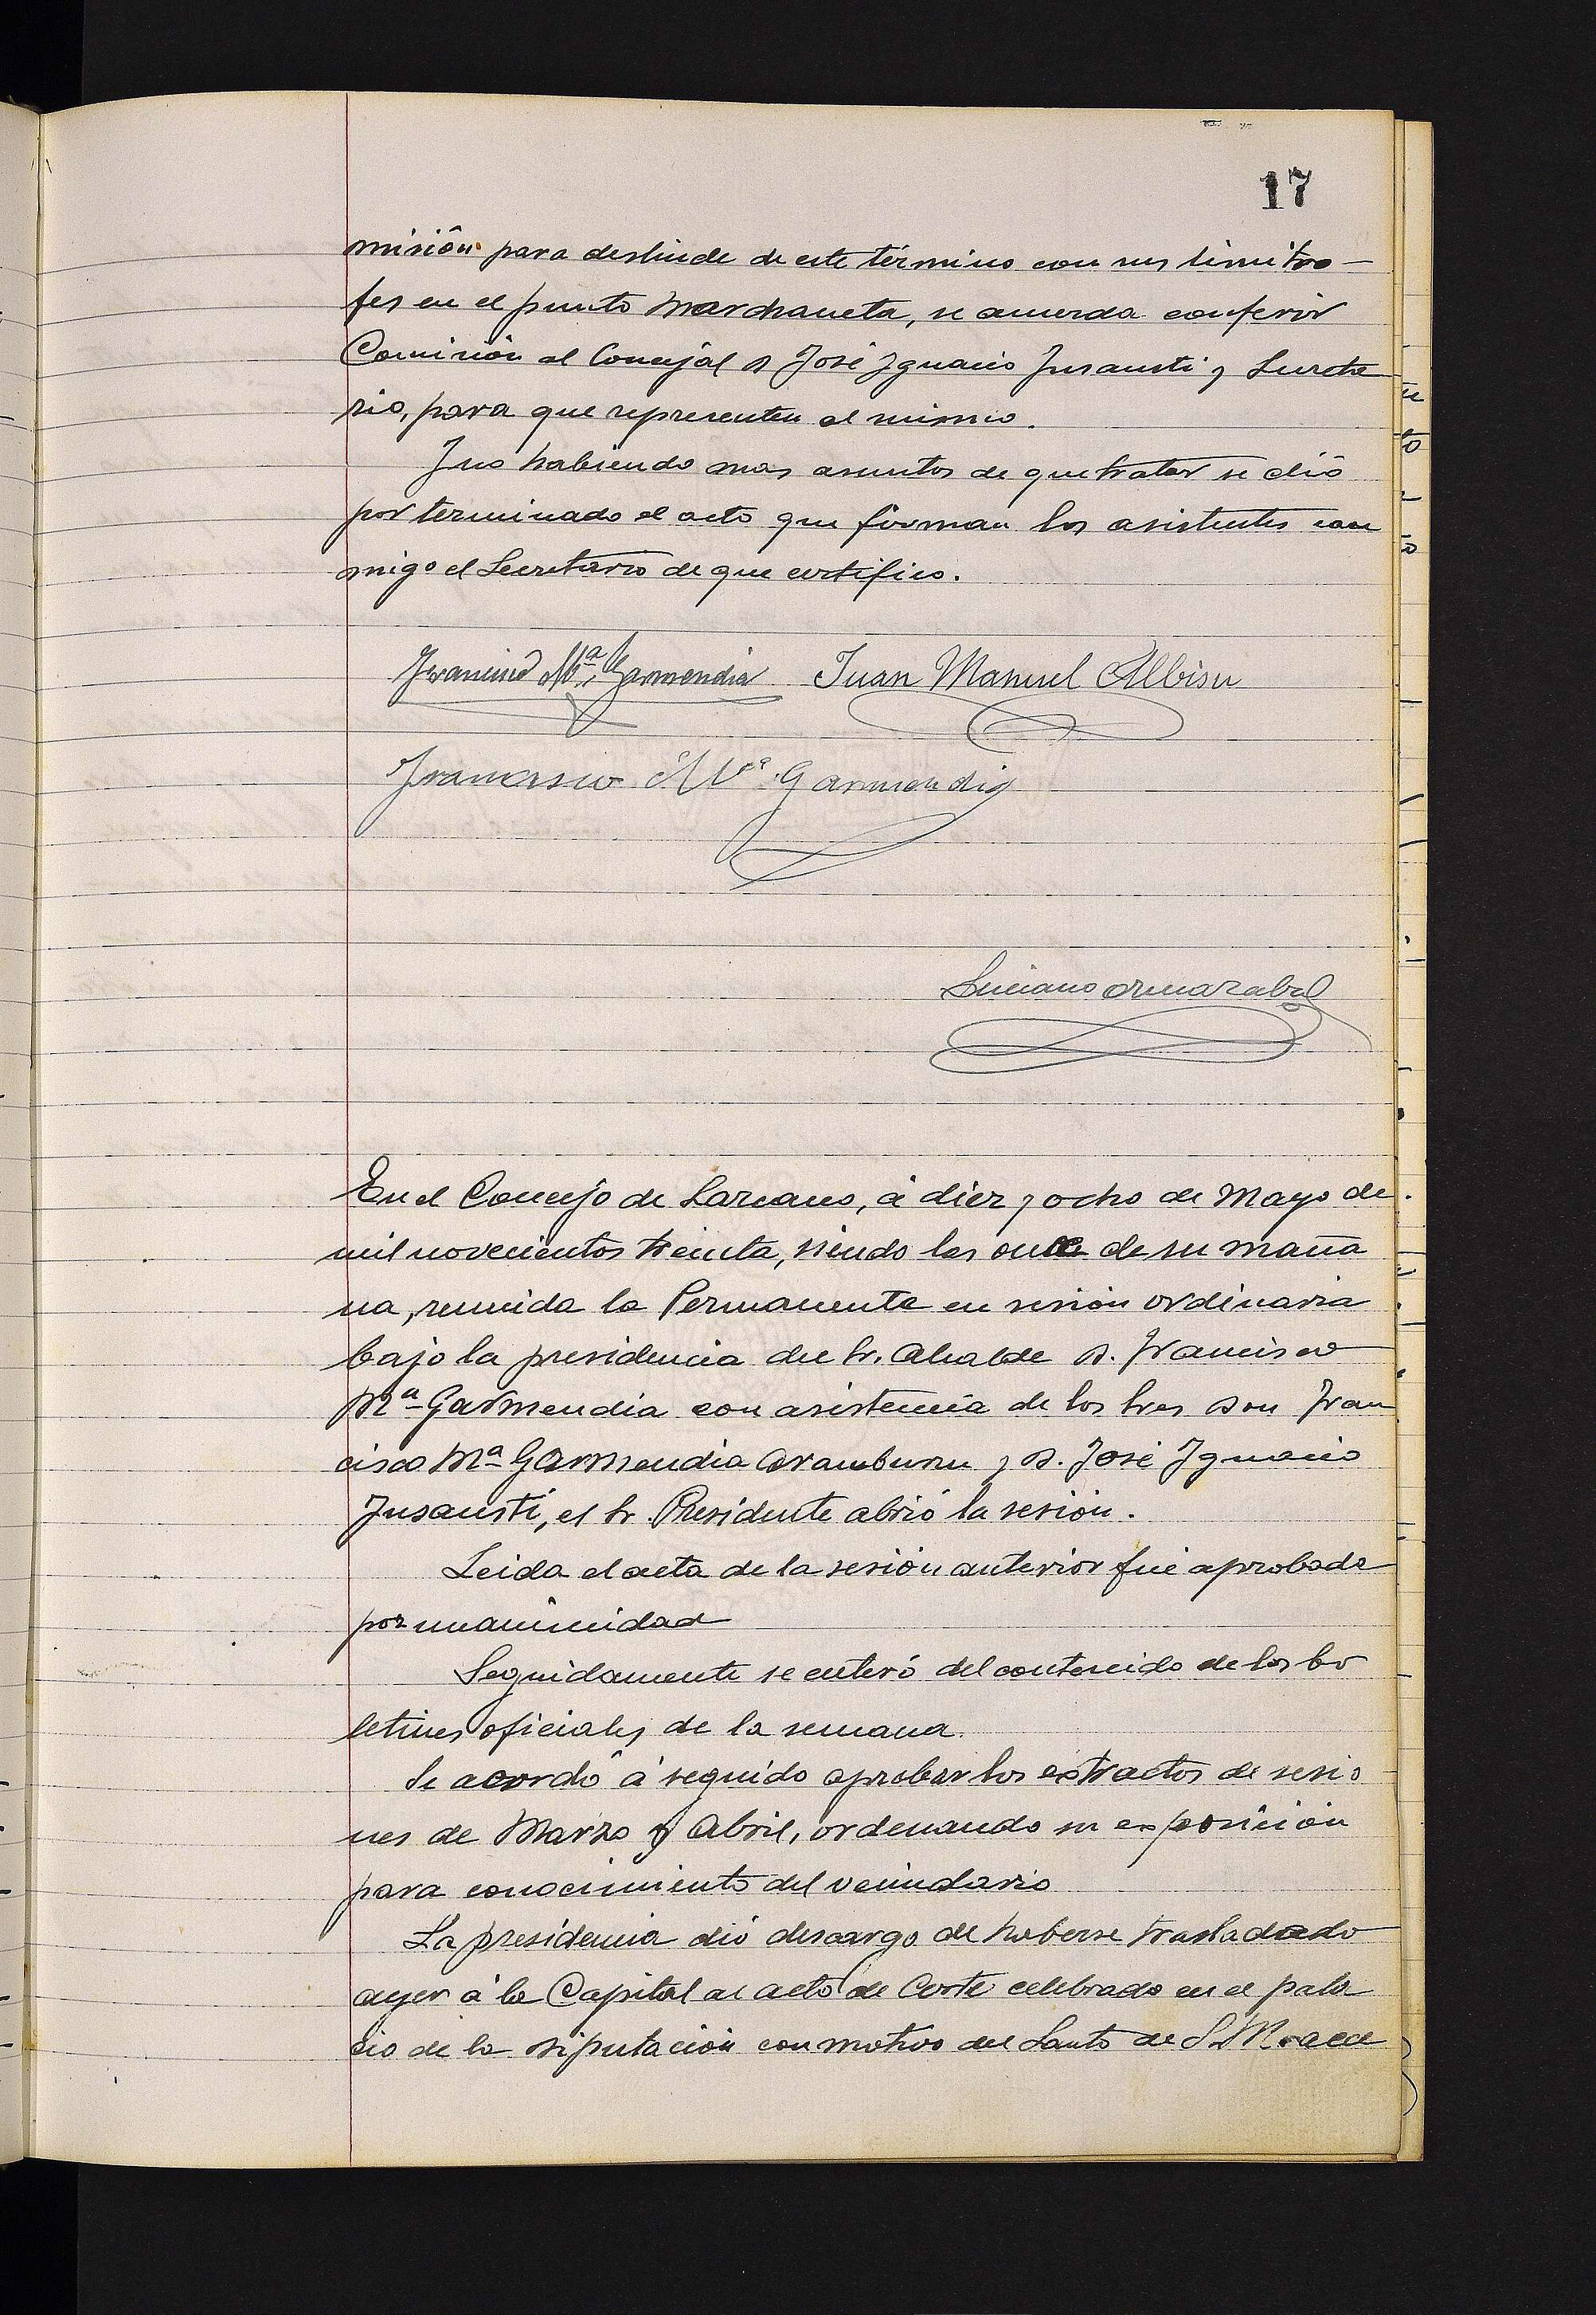 17
misión para deslinde de este término con sus limitro-
fes en el punto Marchaueta, se acuerda conferir
Comisión al Concejal D José Ignacio Insausti y Secreta
rio, para que representen al mismo.
Y no habiendo mas asuntos de que tratar se dió
por terminado el acto que firman los asistentes con
migo el Secretario de que certifico.
Francisco Mª Garmendia Juan Manuel Albisu
Francisco Mª Garmendia
Luciano
En el Concejo de Lazcano, á diez y ocho de Mayo de
mil novecientos treinta, siendo las once de su maña
na, reunida la Permanente en sesión ordinaria
bajo la presidencia del Sr. Alcalde D. Francisco
Mª Garmendia con asistencia de los Sres Don Fran
cisco Mª Garmendia Aramburu y D. José Ignacio
Insausti, el Sr. Presidente abrió la sesión.
Leida el acta de la sesión anterior fué aprobada
por unanimidad
Seguidamente se enteró del contenido de los bo
letines oficiales de la semana.
Se acordó á seguido aprobar los extractos de sesio
nes de Marzo y Abril, ordenando su exposición
para conocimiento del vecindario
La presidencia dió descargo de haberse trasladado
ayer á la Capital al acto de Corte celebrado en el pala
cio de la Diputación con motivo del Santo de S. M.